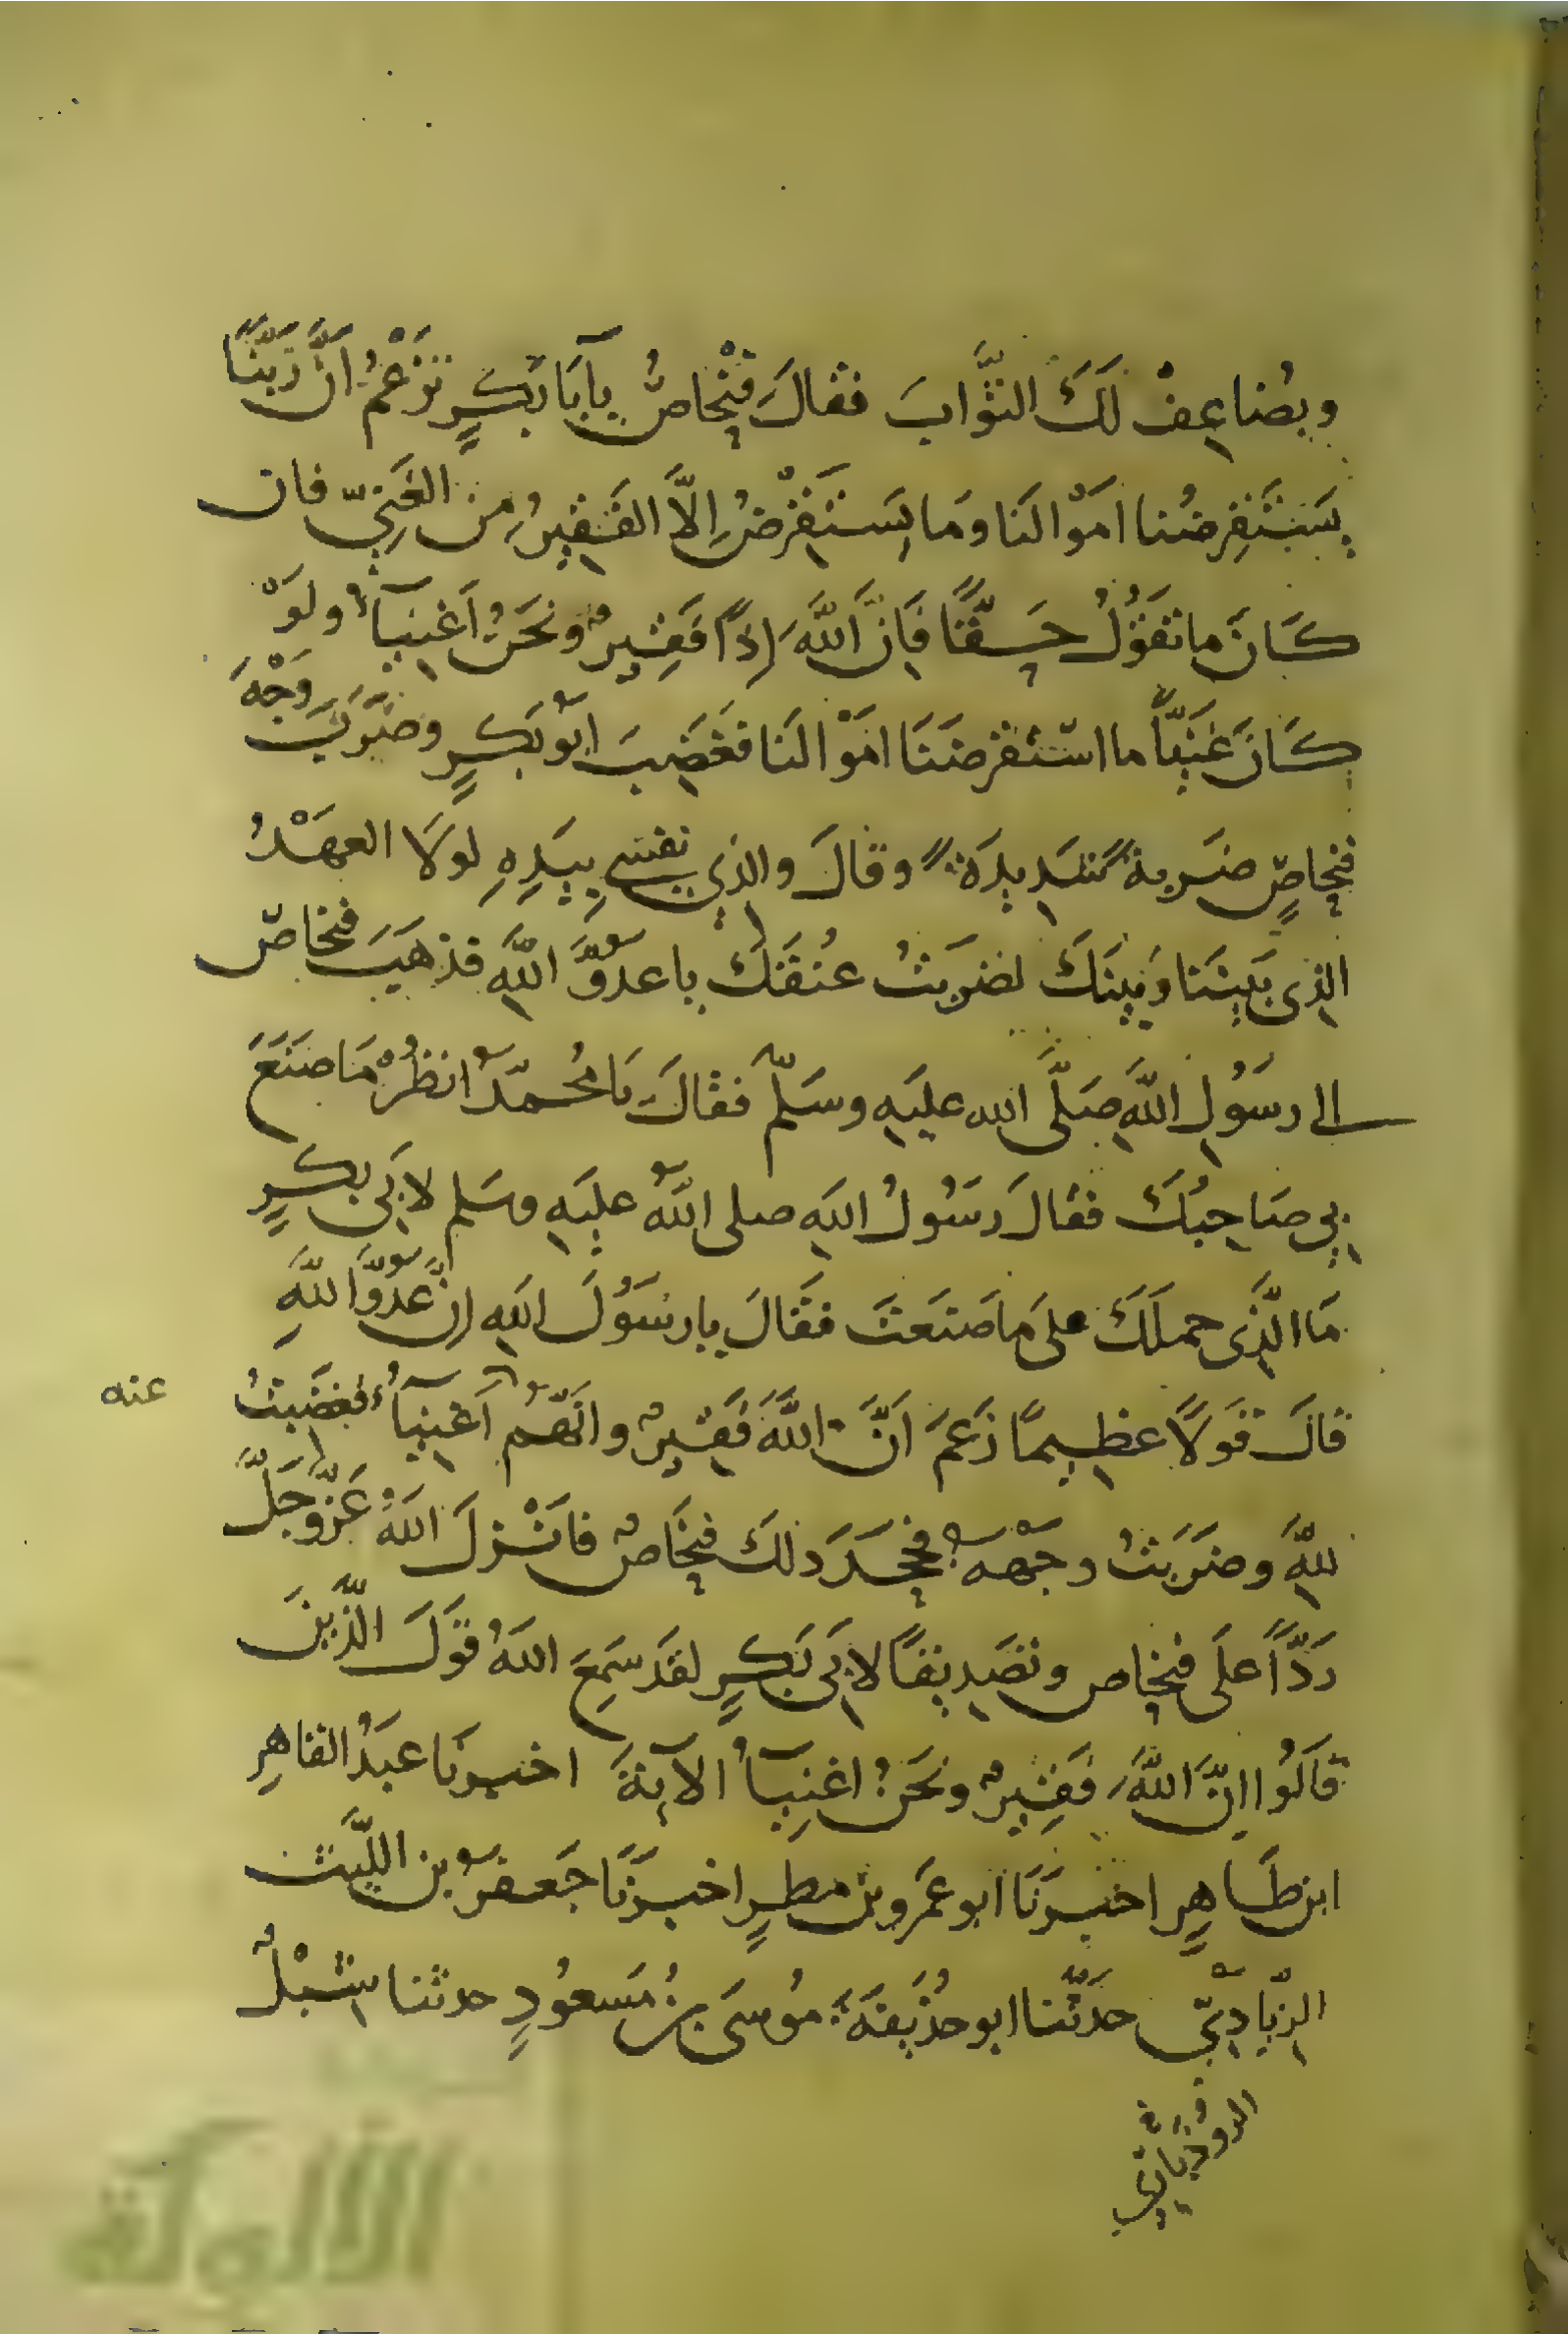 ويُضاعِفْ لَكَ الثَّوَابَ فقالَ فِنْحاصُ يا أبَا بَكرٍ تَزْعُمُ انَّ رَبَّنَا
يَسْتَقرِضُنا امْوَالَنَا ومَا يَسْتَقْرِضُ اِلَّا الفَقيرُ مِن الغَنِيِّ فان
كَانَ ما تقُوْلُ حَقّاً فَاِنَّ اللَّهَ اِذاً فَقِيرٌ ونَحنُ اَغنِيآءُ ولَوْ
كَانَ غَنِيّاً ما اسْتَقرضَنَا امْوَالَنا فغَضِبَ ابُو بَكرٍ وضَرَبَ وَجْهَ
فِنحاصٍ ضَربةً شَدِيدَةً وقالَ والذِي نفسي بِيَدِهِ لولَا العهْدُ
الذِى بَيْنَنا وَبَينَكَ لضَربتُ عُنُقَكَ يا عدُوَّ اللَّهِ فذهَبَ فنحاصُ
الى رسُولِ اللَّهِ صَلَّى الله عليَهِ وسَلّم فقالَ يَا مُحمّدُ انظُرْ مَا صَنَعَ
بِي صَاحِبُكَ فقالَ رسُولُ اللهِ صلى اللهُ عليَهِ وسَلم لابَى بكرٍ
مَا الَّذِى حملَكَ علَى ما صَنَعتَ فقَالَ يا رسُولَ اللهِ اِنَّ عدُوَّ اللَّهِ
قالَ قَولًا عظِيمًا زَعَمَ اَنَّ اللَّهَ فَقِيرٌ وانَّهُم اَغنِيآءُ فغَضبتُ عنه
للهِ وضرَبتُ وجهه فجَحَدَ ذلكَ فِنحَاصُ فانْزلَ اللهُ عَزَّ وجَلَّ
رَدّاً علَى فِنحاص وتصدِيقاً لابَى بَكرٍ لقَد سَمِعَ اللهُ قوَلَ الَّذينَ
قالُوا انَّ اللَّهَ فَقِيرٌ ونَحنُ اغنِيآءُ الآيةَ اخبرنَا عبَدُ القاهِرِ
ابن طَاهِرٍ اخبرَنَا ابو عمَرو بن مطرٍ اخبرَنَا جَعفرُ بن اللَّيث
الزِّيادِيّ حدَّثنا ابو حُذَيفَةَ مُوسَى بنُ مَسعُودٍ حدثنا شِبْلٌ